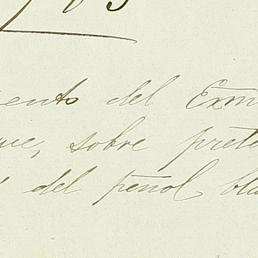 ento del Exm
ue, sobre prete
s del peñol bla